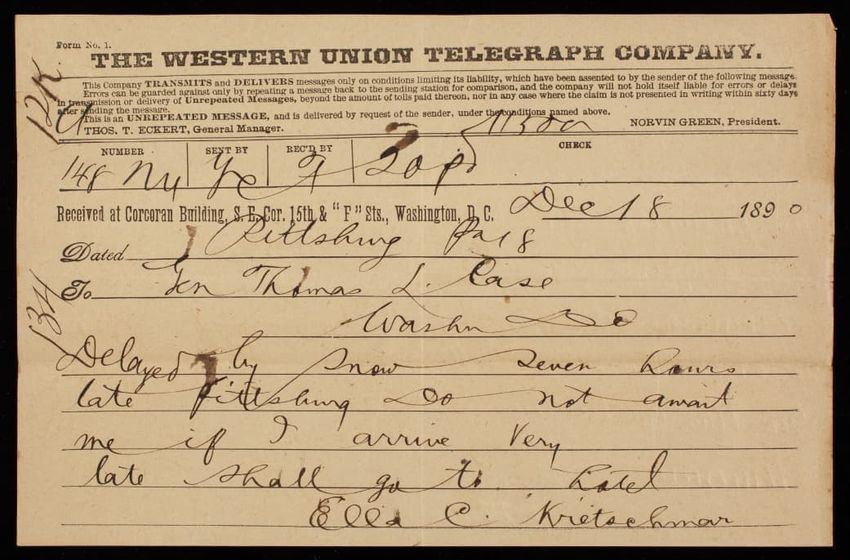 Form No. 1.
THE WESTERN UNION TELEGRAPH COMPANY.
This Company TRANSMITS and DELIVERS messages only on conditions limiting its liability, which have been assented to by the sender of the following message.
Errors can be guarded against only by repeating a message back to the sending station for comparison, and the company will not hold itself liable for errors or delays
in transmission or delivery of Unrepeated Messages, beyond the amount of tolls paid thereon, nor in any case where the claim is not presented in writing within sixty days
after sending the message.
This is an UNREPEATED MESSAGE, and is delivered by request of the sender, under the conditions named above.
THOS. T. ECKERT, General Manager. NORVIN GREEN, President.
NUMBER SENT BY REC'D BY CHECK
148 Ny
Received at Corcoran Building, S. E. Cor. 15th & "F" Sts., Washington, D. C. Dec 18 1890
Dated Pittsburg Pa 18
To Gen Thomas L. Case
Washn DC
Delayed by snow seven hours
late Pittsburg Do not await
me if I arrive very
late shall go to hotel
Ella C. Kretschmar
134